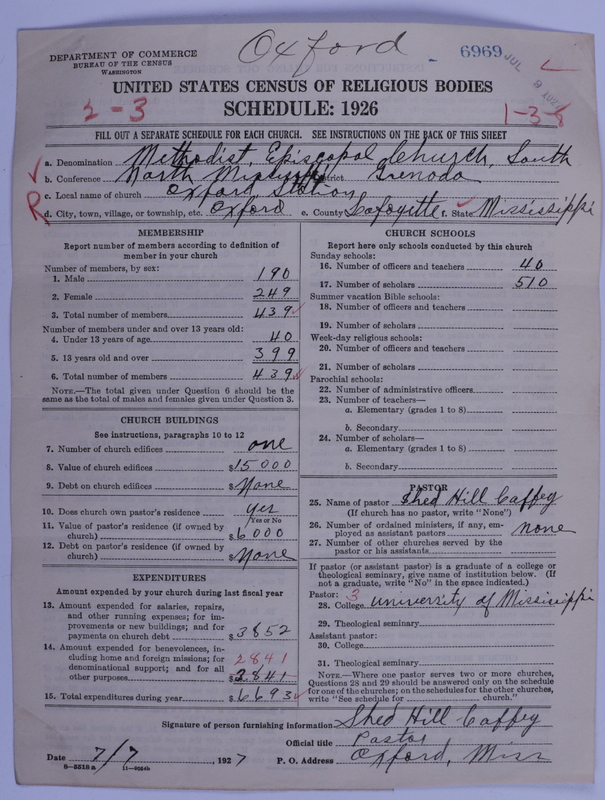 Oxford
DEPARTMENT OF COMMERCE
BUREAU OF THE CENSUS
WASHINGTON
6969
JUL 9 1927
UNITED STATES CENSUS OF RELIGIOUS BODIES
2-3
SCHEDULE: 1926
1-3-8
FILL OUT A SEPARATE SCHEDULE FOR EACH CHURCH. SEE INSTRUCTIONS ON THE BACK OF THIS SHEET
a. Denomination Methodist Episcopal Church, South
b. Conference North Mississippi District Grenada
c. Local name of church Oxford Station
R d. City, town, village, or township, etc. Oxford e. County Lafayette f. State Mississippi
MEMBERSHIP
Report number of members according to definition of
member in your church
Number of members, by sex:
1. Male 190
2. Female 249
3. Total number of members 439
Number of members under and over 13 years old:
4. Under 13 years of age 40
5. 13 years old and over 399
6. Total number of members 439
NOTE.—The total given under Question 6 should be the
same as the total of males and females given under Question 3.
CHURCH BUILDINGS
See instructions, paragraphs 10 to 12
7. Number of church edifices one
8. Value of church edifices $15000
9. Debt on church edifices $None
10. Does church own pastor's residence yes
Yes or No
11. Value of pastor's residence (if owned by
church) $6000
12. Debt on pastor's residence (if owned by
church) $None
EXPENDITURES
Amount expended by your church during last fiscal year
13. Amount expended for salaries, repairs,
and other running expenses; for im-
provements or new buildings; and for
payments on church debt $3852
14. Amount expended for benevolences, in-
cluding home and foreign missions; for
denominational support; and for all 2841
other purposes $2841
15. Total expenditures during year $6693
CHURCH SCHOOLS
Report here only schools conducted by this church
Sunday schools:
16. Number of officers and teachers 40
17. Number of scholars 510
Summer vacation Bible schools:
18. Number of officers and teachers
19. Number of scholars
Week-day religious schools:
20. Number of officers and teachers
21. Number of scholars
Parochial schools:
22. Number of administrative officers
23. Number of teachers—
a. Elementary (grades 1 to 8)
b. Secondary
24. Number of scholars—
a. Elementary (grades 1 to 8)
b. Secondary
PASTOR
25. Name of pastor Shed Hill Caffey
(If church has no pastor, write "None")
26. Number of ordained ministers, if any, em-
ployed as assistant pastors none
27. Number of other churches served by the
pastor or his assistants
If pastor (or assistant pastor) is a graduate of a college or
theological seminary, give name of institution below. (If
not a graduate, write "No" in the space indicated.)
Pastor: 3
28. College University of Mississippi
29. Theological seminary
Assistant pastor:
30. College
31. Theological seminary
NOTE.—Where one pastor serves two or more churches,
Questions 28 and 29 should be answered only on the schedule
for one of the churches; on the schedules for the other churches,
write "See schedule for church."
Signature of person furnishing information Shed Hill Caffey
Official title Pastor
Date 7/7, 1927 P. O. Address Oxford, Miss
8—5518a 11—9264b